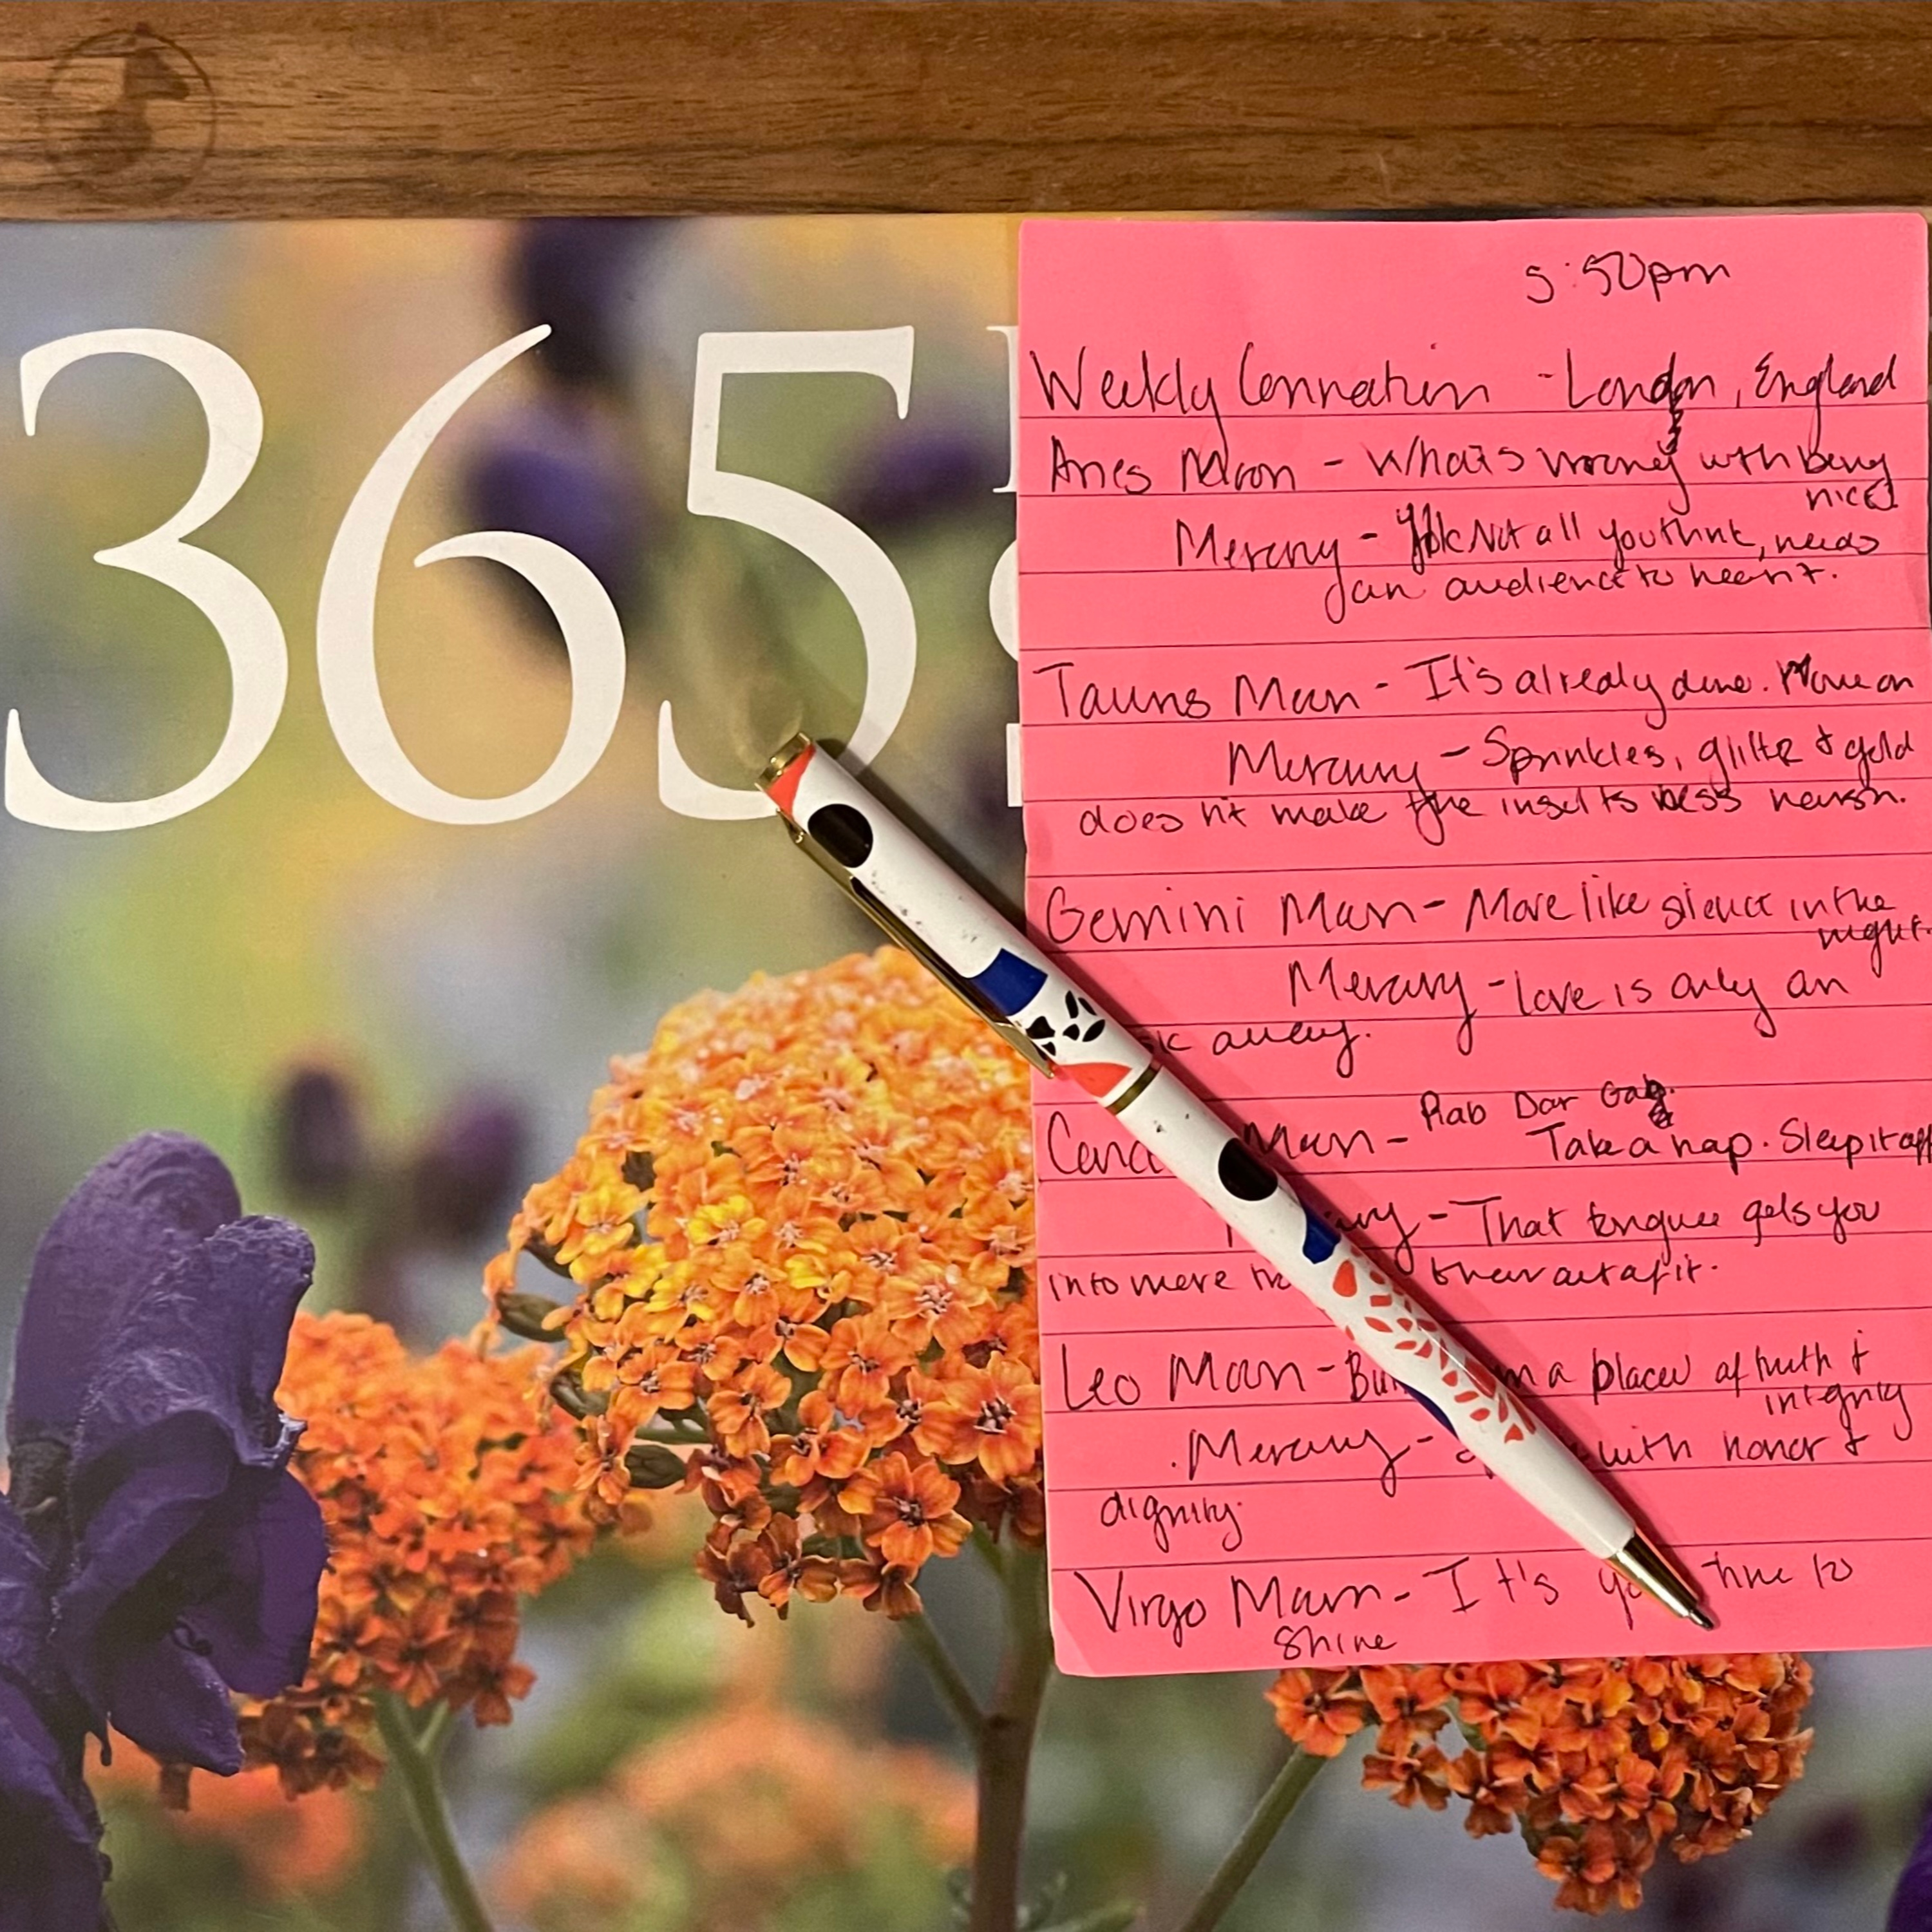 365
5:50pm
Weekly Connection - London, England
Aries Moon - What's wrong with being
nice
Mercury - Not all you think, needs
an audience to hear it.
Taurus Moon - It's already done. Move on
Mercury - Sprinkles, glitter & gold
does nt make the insults less harsh.
Gemini Moon - More like silence in the
night.
Mercury - Love is only an
away.
Rab Dar Gag
Moon - Take a nap. Sleep it off
- That tongue gets you
into more than out of it.
Leo Moon - in a place of truth &
integrity
Mercury - with honor &
dignity.
Virgo Moon - It's time to
Shine